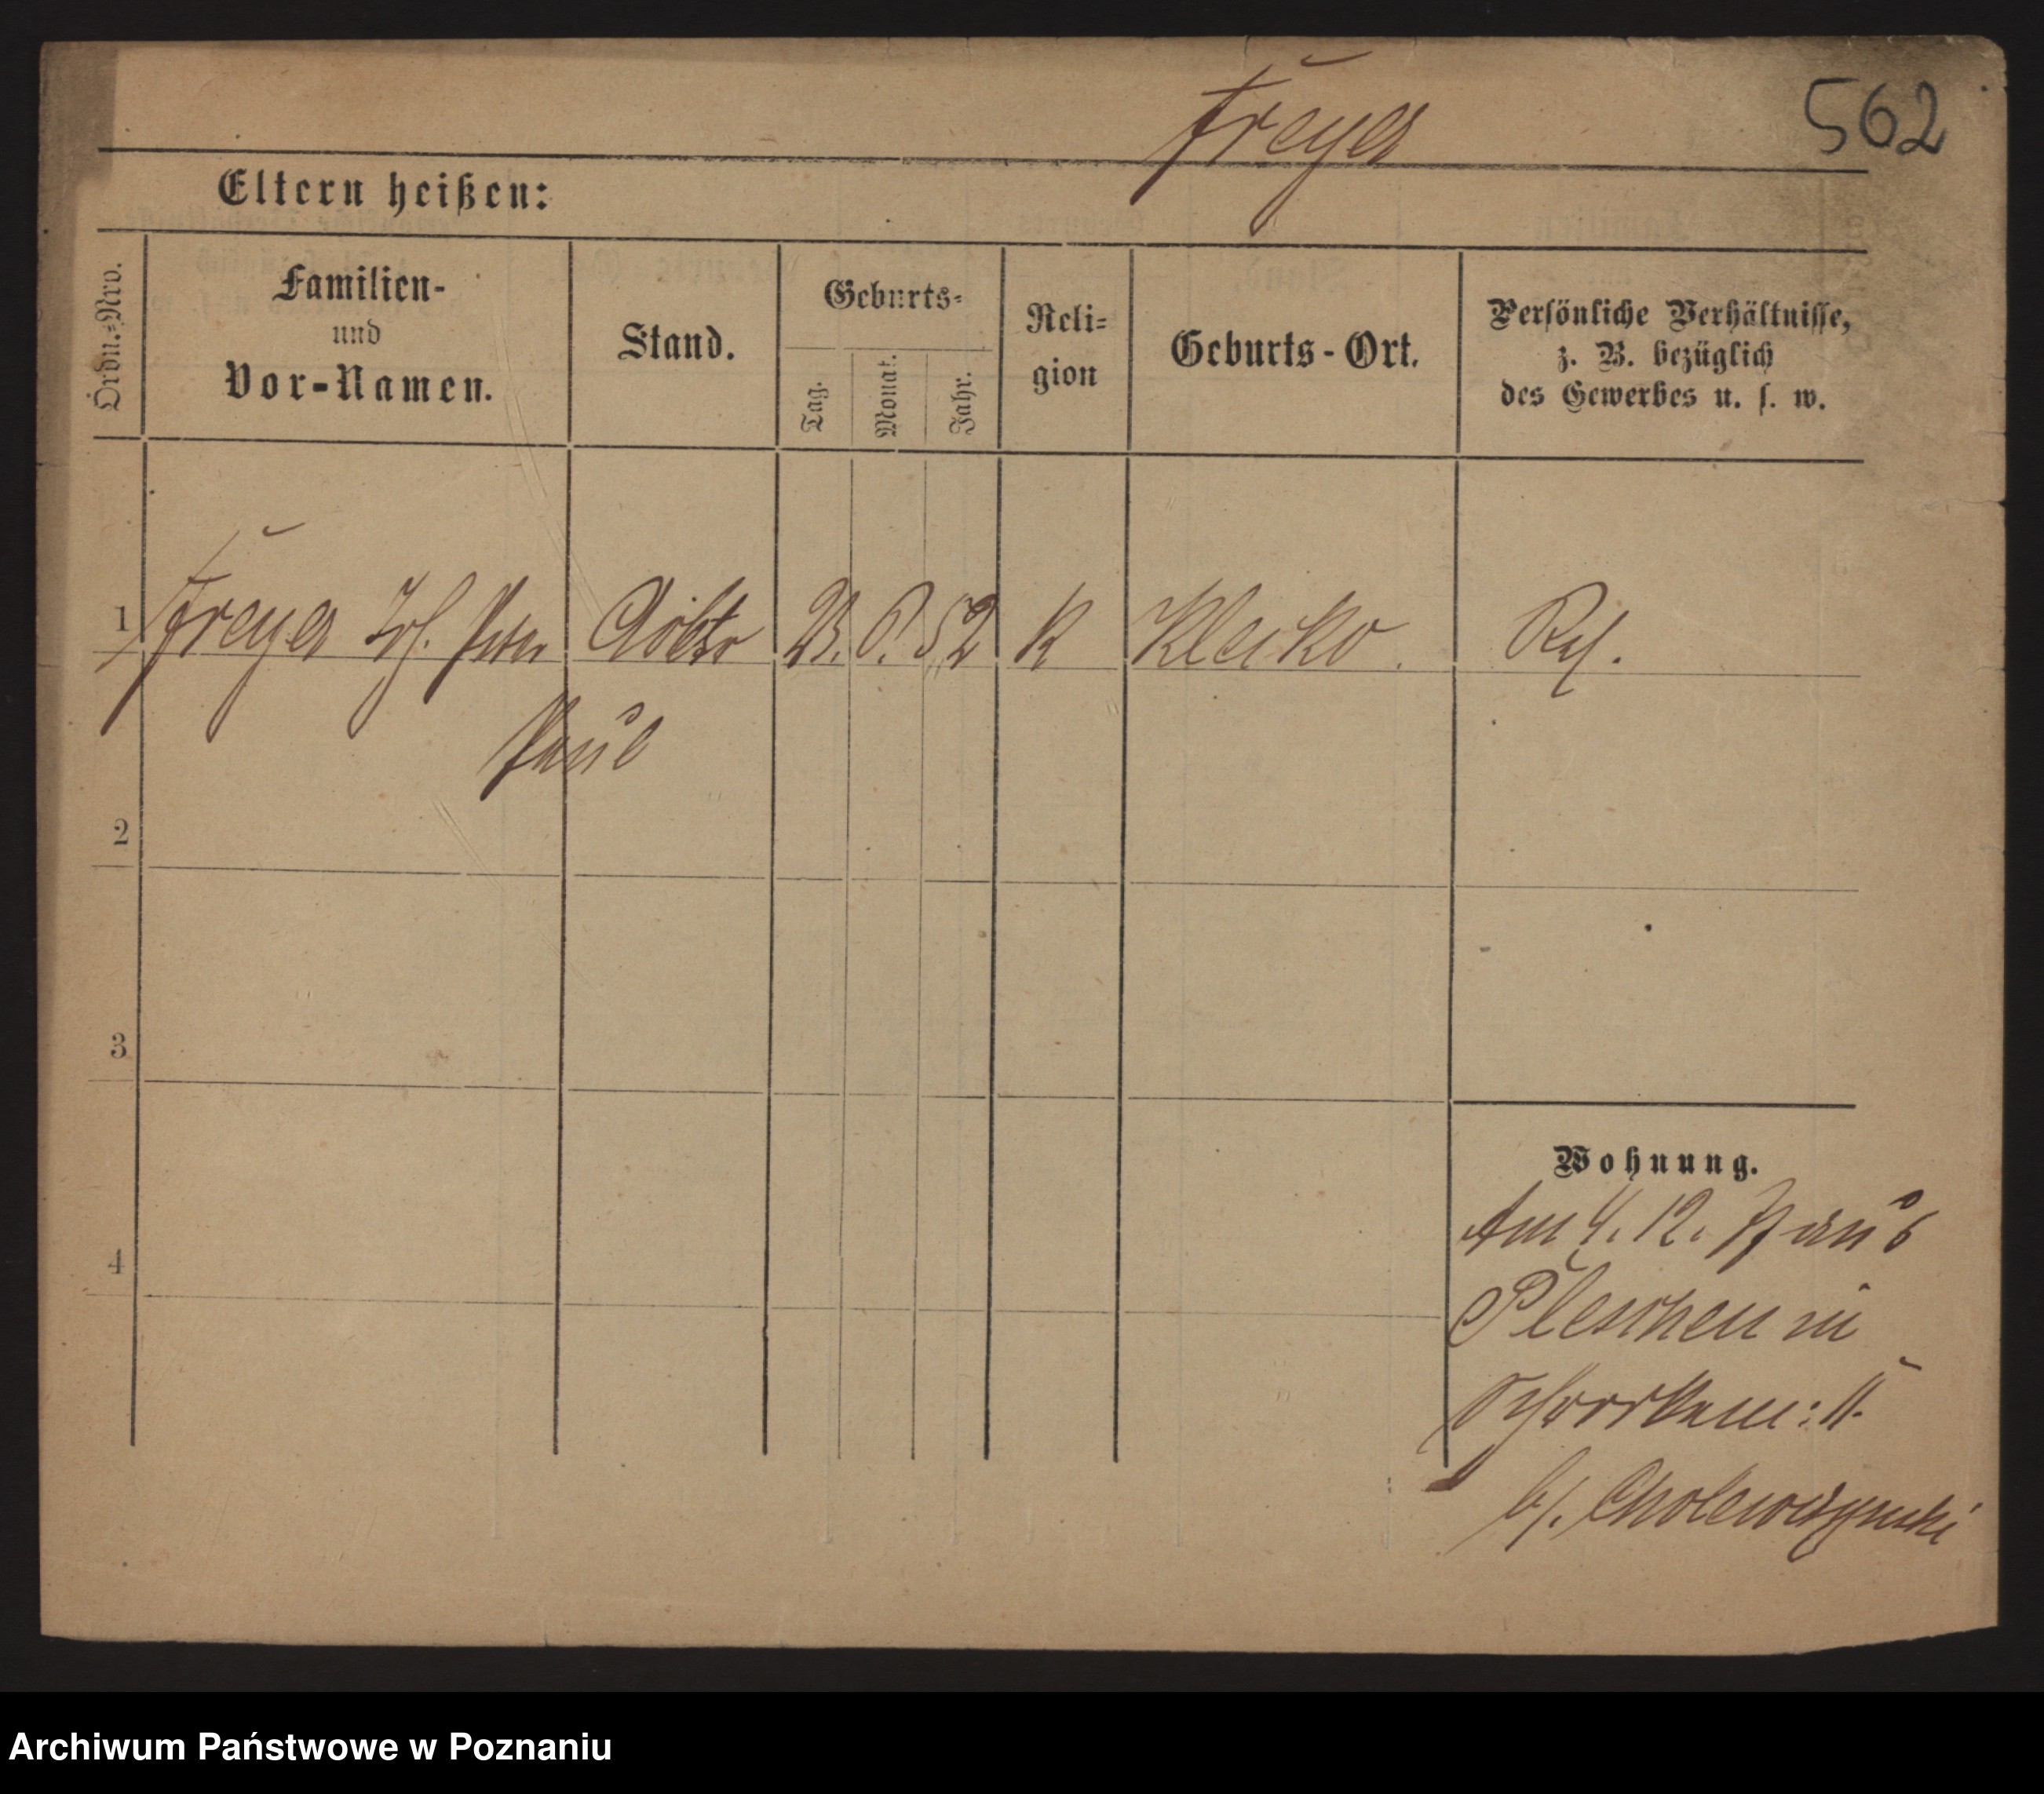 Freyer
562
Eltern heißen:
Ordn.-Nro.
Familien-
und
Vor-Namen.
Stand.
Geburts-
Tag.
Monat.
Jahr.
Reli-
gion
Geburts-Ort.
Persönliche Verhältnisse,
z. B. bezüglich
des Gewerbes u. s. w.
1
Freyer Joh. Peter
52
K
Klecko.
Paul
2
3
4
Wohnung.
Am 4. 12.
Pleschen in
b/. Cholewczynski
Archiwum Państwowe w Poznaniu